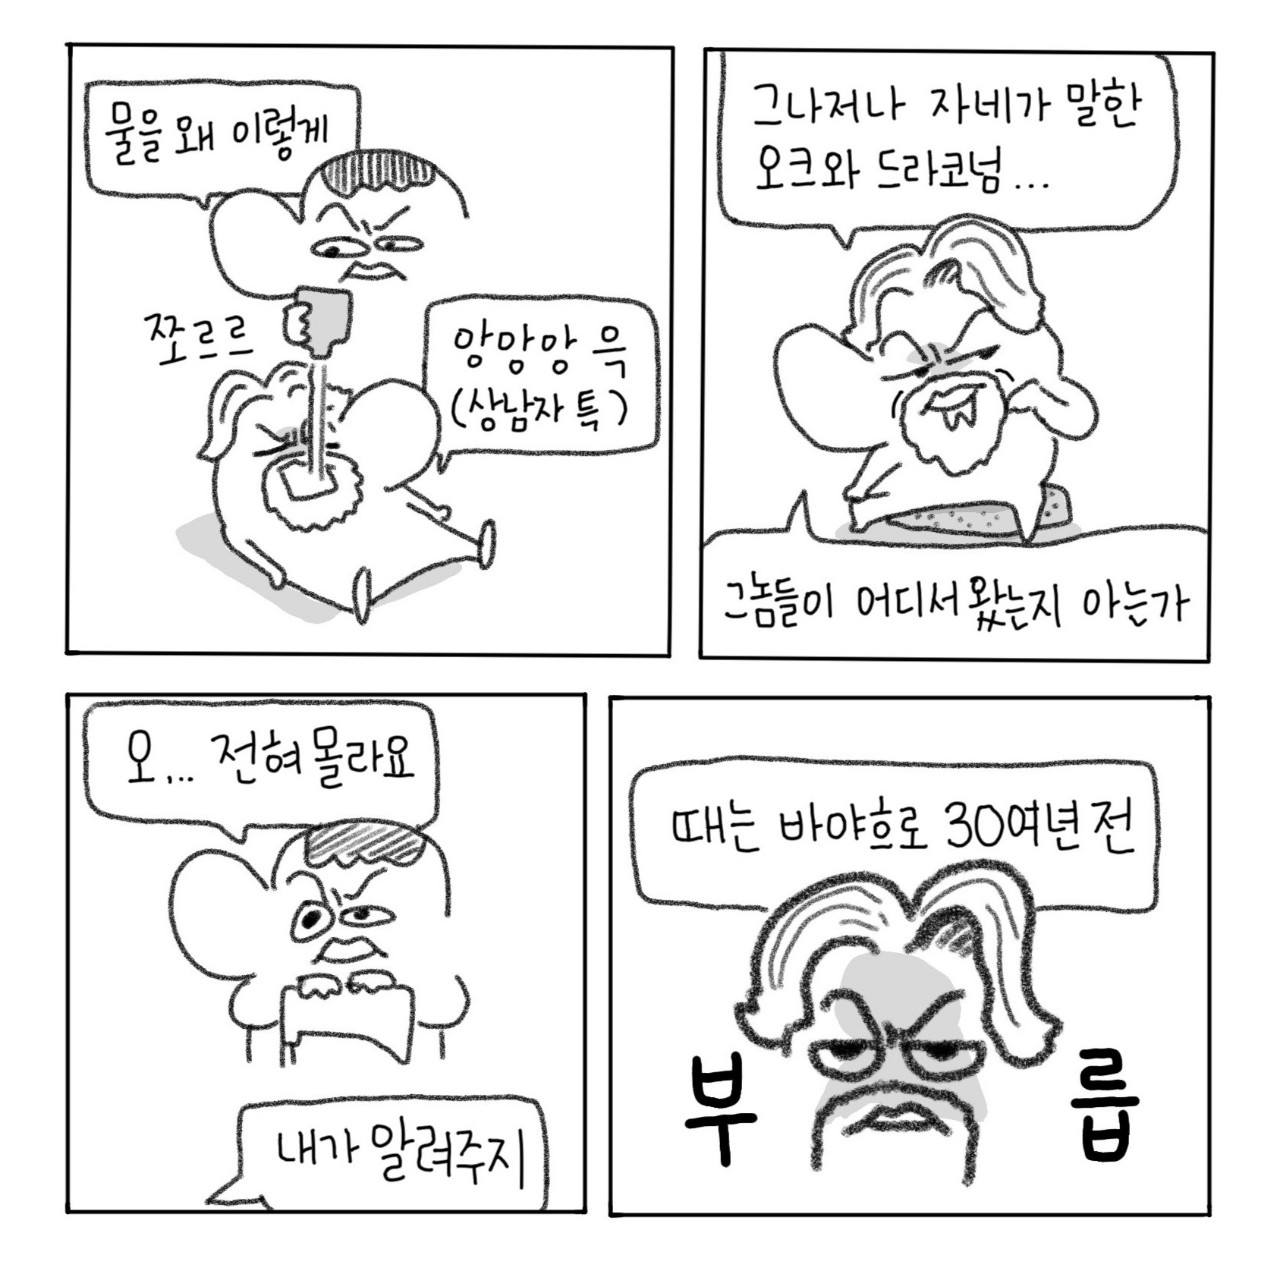 물을 왜 이렇게
쪼르르
앙앙앙 윽
(상남자 특)
그나저나 자네가 말한
오크와 드라코넘...
그놈들이 어디서 왔는지 아는가
오... 전혀 몰라요
내가 알려주지
때는 바야흐로 30여년 전
부릅